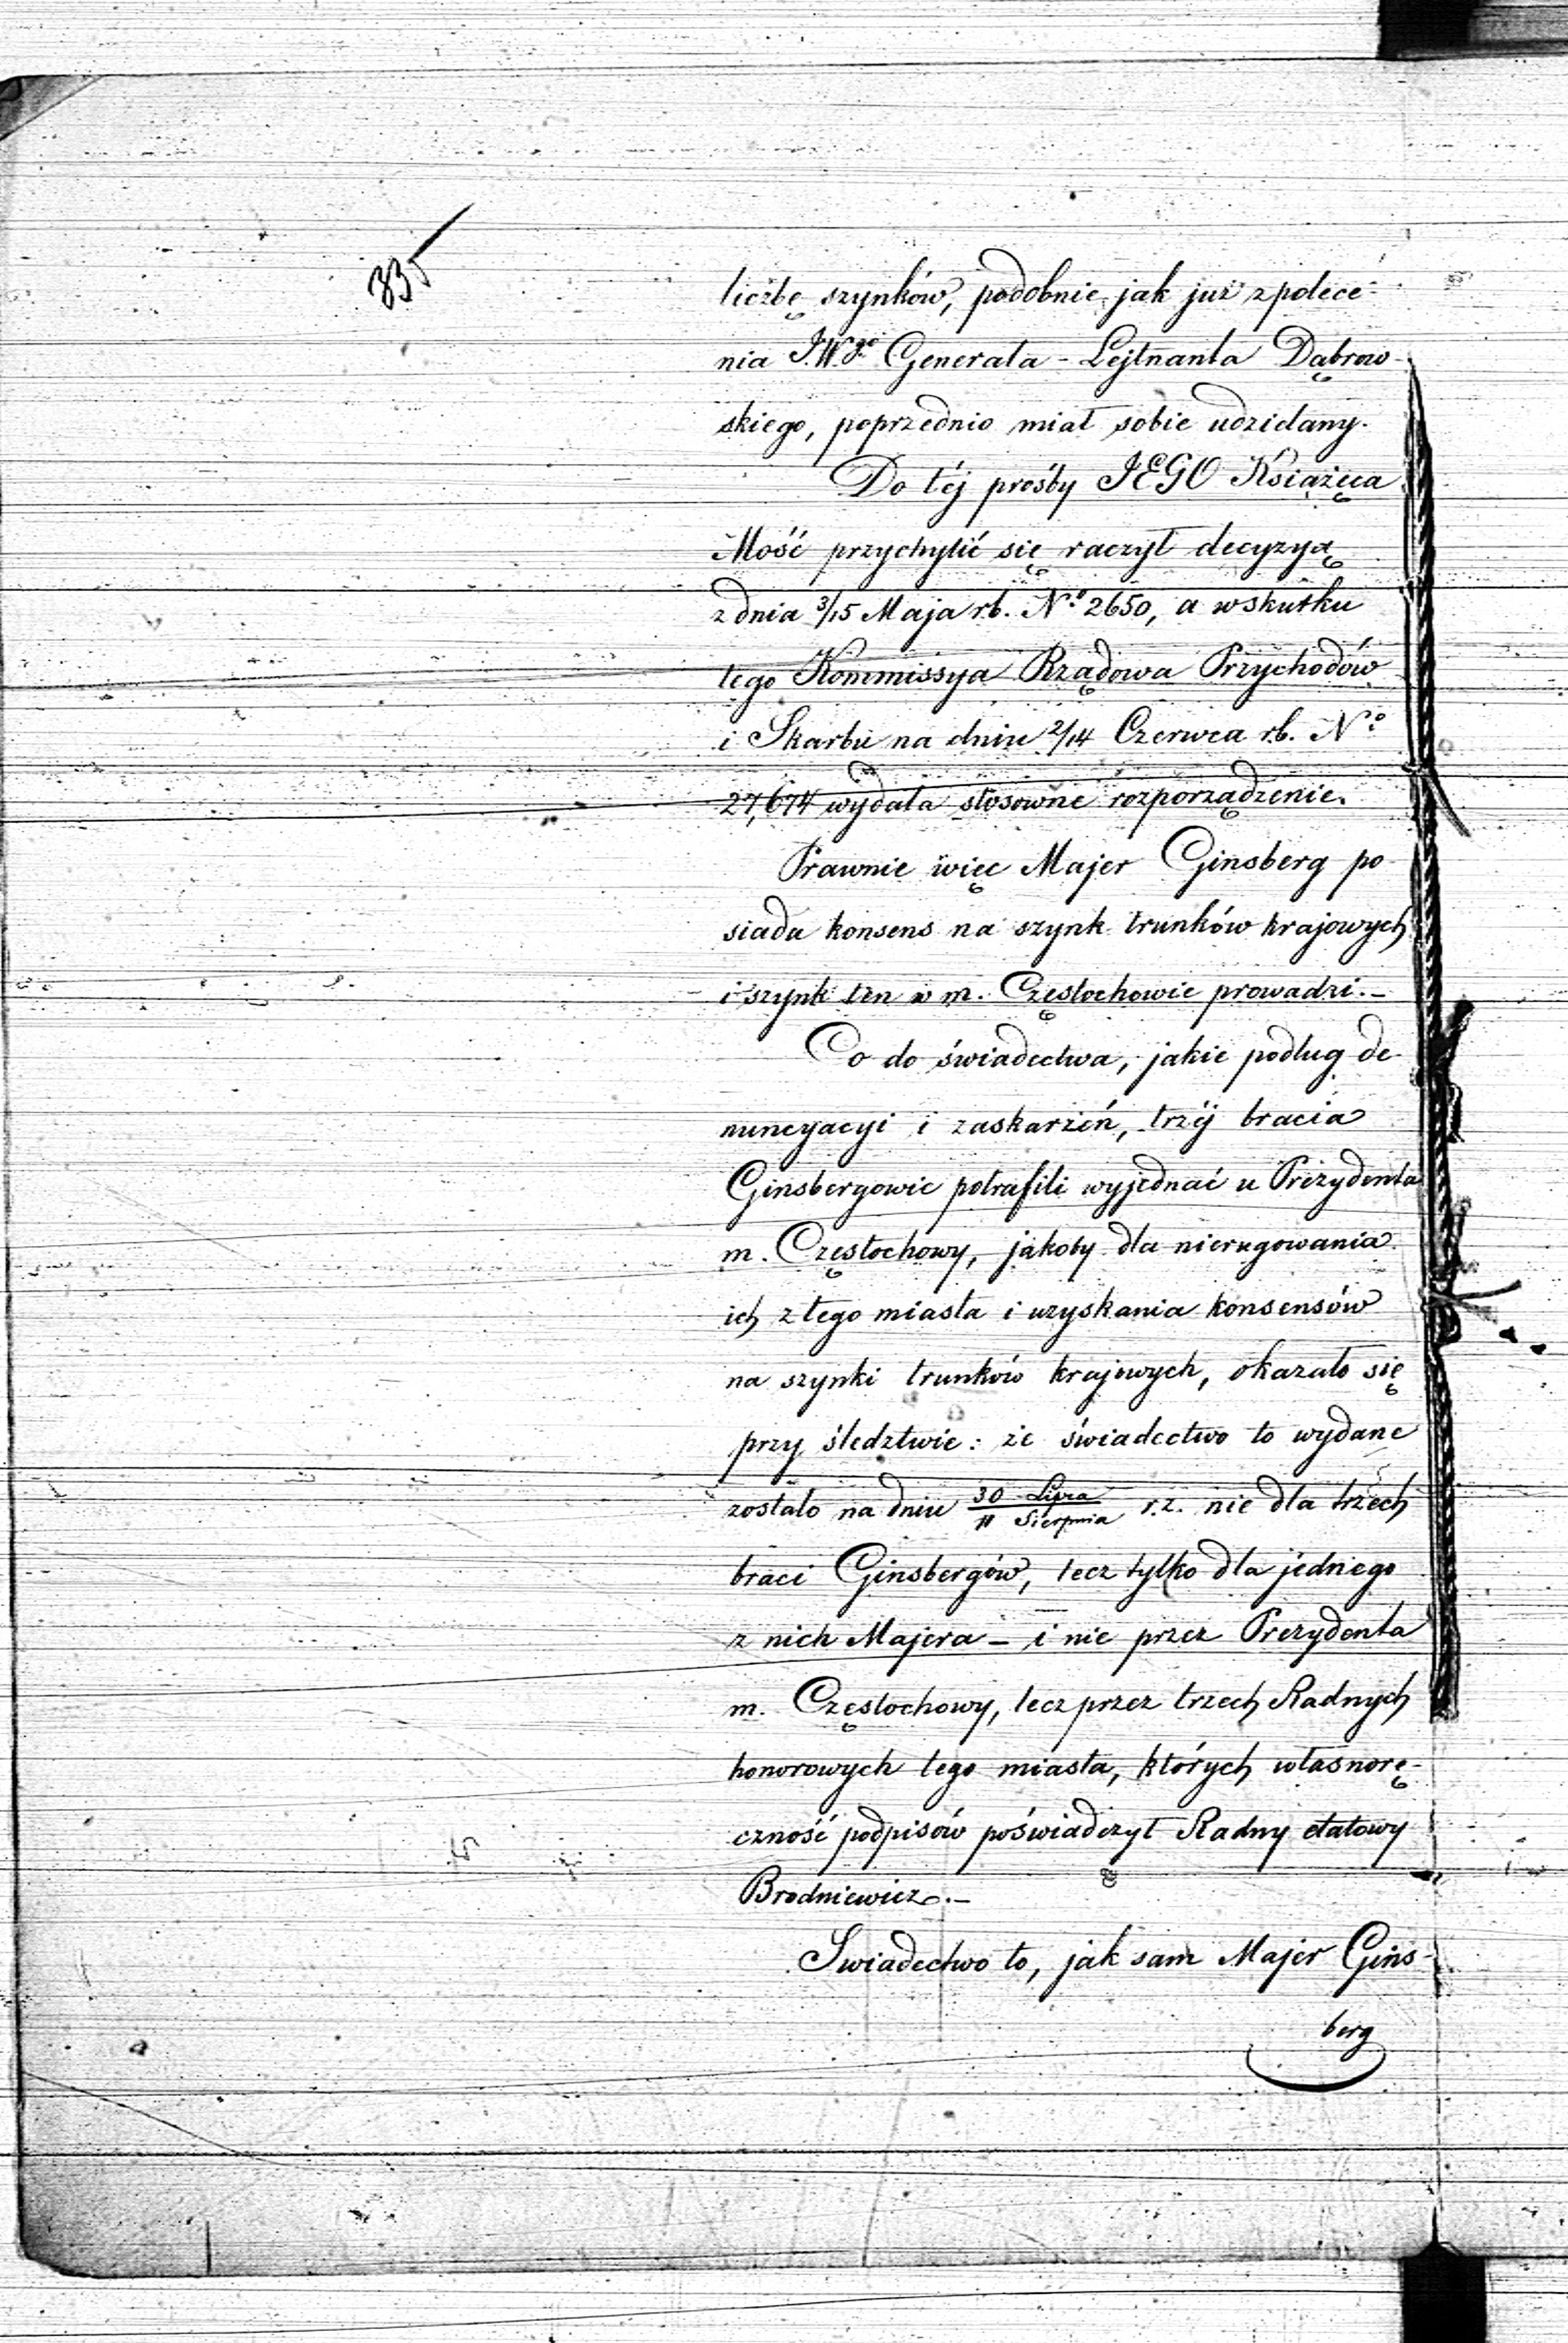 335
liczbę szynków, podobnie, jak już z polece-
nia J.W.go Generała - Lejtnanta Dąbrow-
skiego, poprzednio miał sobie udzielany.
Do téj prośby JEGO Książęca
Mość przychylić się raczył decyzyą
z dnia 3/15 Maja r.b. No 2650, a w skutku
tego Kommissya Rządowa Przychodów
i Skarbu na dniu 2/14 Czerwca r.b. No
27,674 wydała stosowne rozporządzenie.
Prawnie więc Majer Ginsberg po-
siada konsens na szynk trunków krajowych
i szynk ten w m. Częstochowie prowadzi.-
Co do świadectwa, jakie podług de-
nuncyacyi i zaskarżeń, trzéj bracia
Ginsbergowie potrafili wyjednać u Prezydenta
m. Częstochowy, jakoby dla nierugowania
ich z tego miasta i uzyskania konsensów
na szynki trunków krajowych, okazało się
przy śledztwie: że świadectwo to wydane
zostało na dniu 30 Lipca / 11 Sierpnia r.z. nie dla trzech
braci Ginsbergów, lecz tylko dla jednego
z nich Majera - i nie przez Prezydenta
m. Częstochowy, lecz przez trzech Radnych
honorowych tego miasta, których własnorę-
czność podpisów poświadczył Radny etatowy
Brodniewicz.-
Swiadectwo to, jak sam Majer Gins-
berg